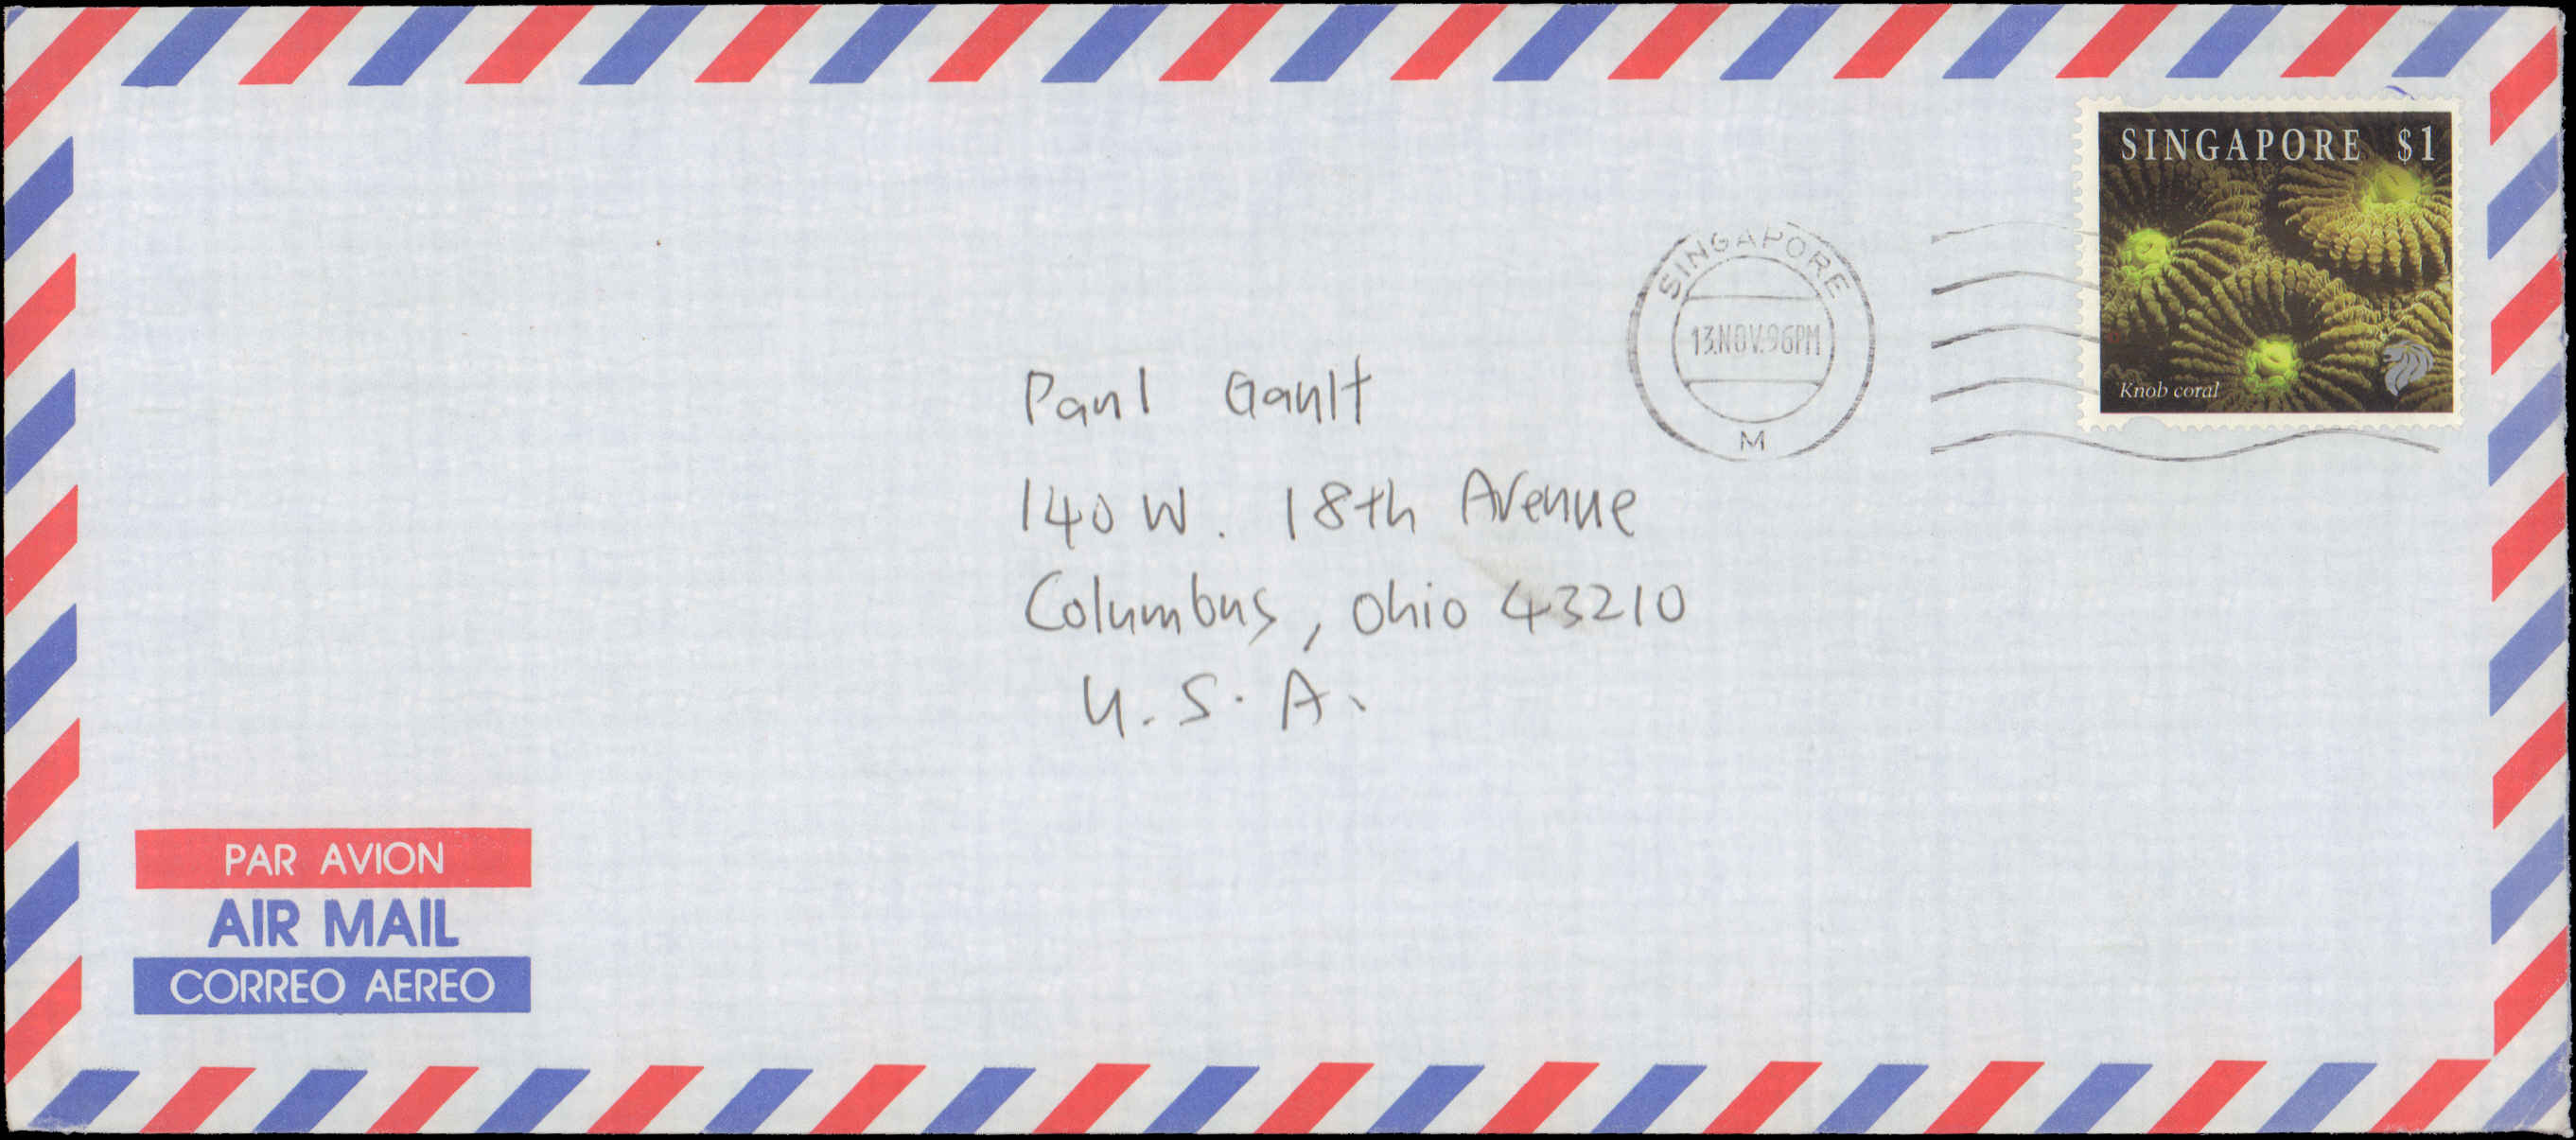 SINGAPORE $1
Knob coral
SINGAPORE
13.NOV.96PM
M
Paul Gault
140 W. 18th Avenue
Columbus, Ohio 43210
U.S.A.
PAR AVION
AIR MAIL
CORREO AEREO